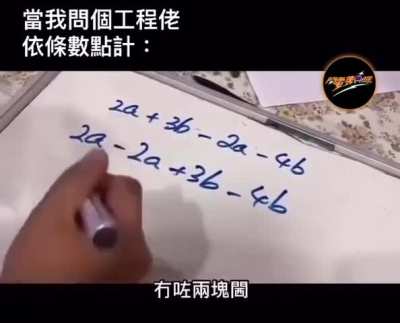 當我問個工程佬
依條數點計：
2a + 3b - 2a - 4b
2a - 2a + 3b - 4b
冇咗兩塊閪